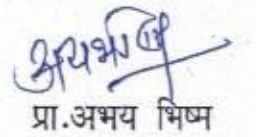 प्रा.अभय भिष्म